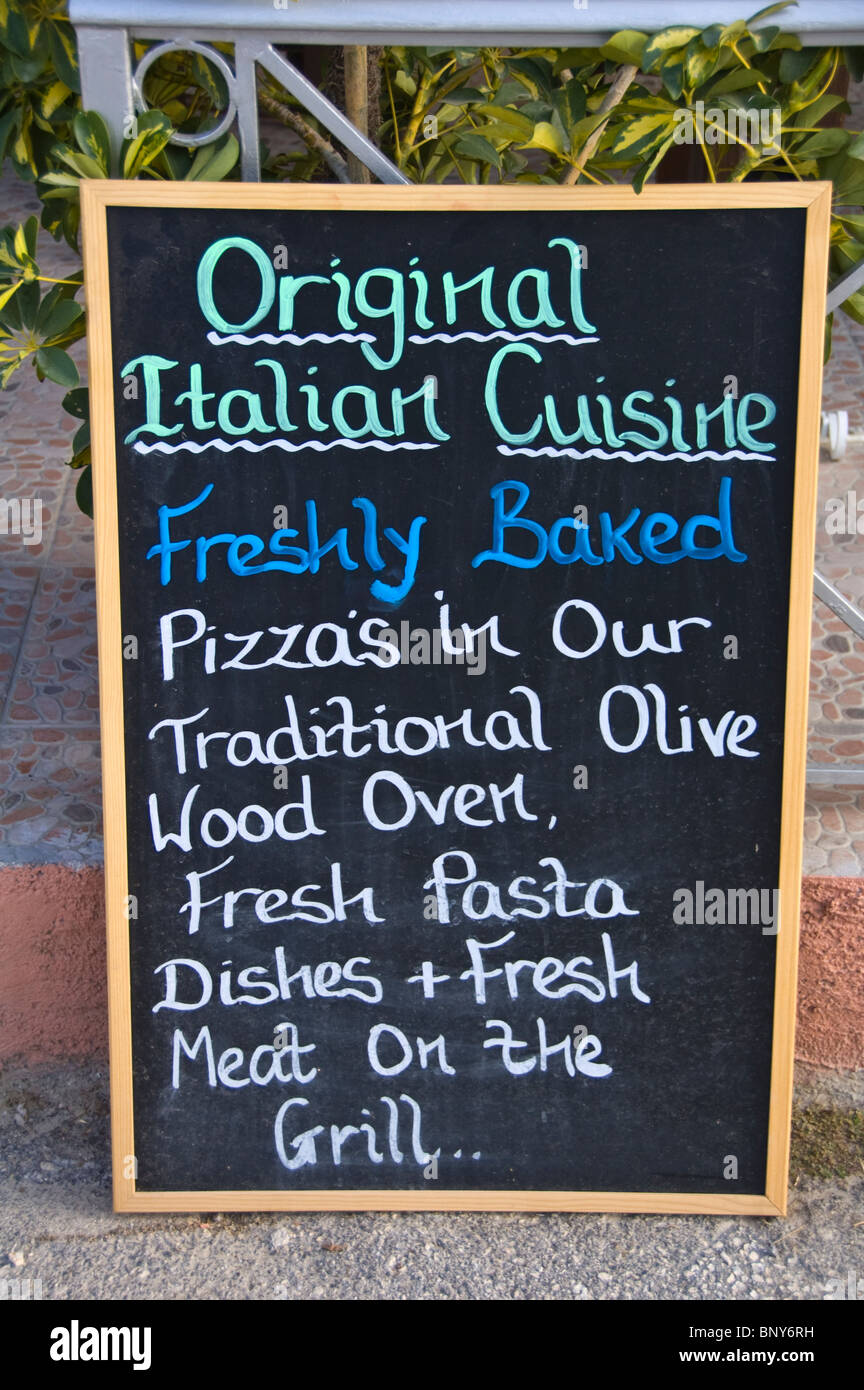 Original
Italian Cuisine
Freshly Baked
Pizza's In Our
Traditional Olive
Wood Oven,
Fresh Pasta
Dishes + Fresh
Meat On the
Grill...
alamy
Image ID: BNY6RH
www.alamy.com